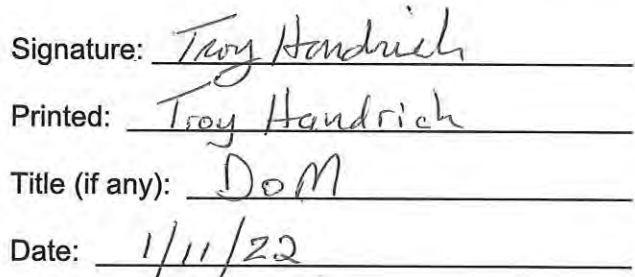 Signature: Troy Handrich
Printed: Troy Handrich
Title (if any): DoM
Date: 1/11/22